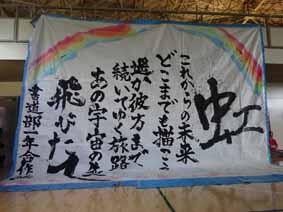 虹
これからの未来
どこまでも描こう
遥か彼方まで
続いてゆく旅路
あの宇宙の先
飛びたて
書道部一年合作